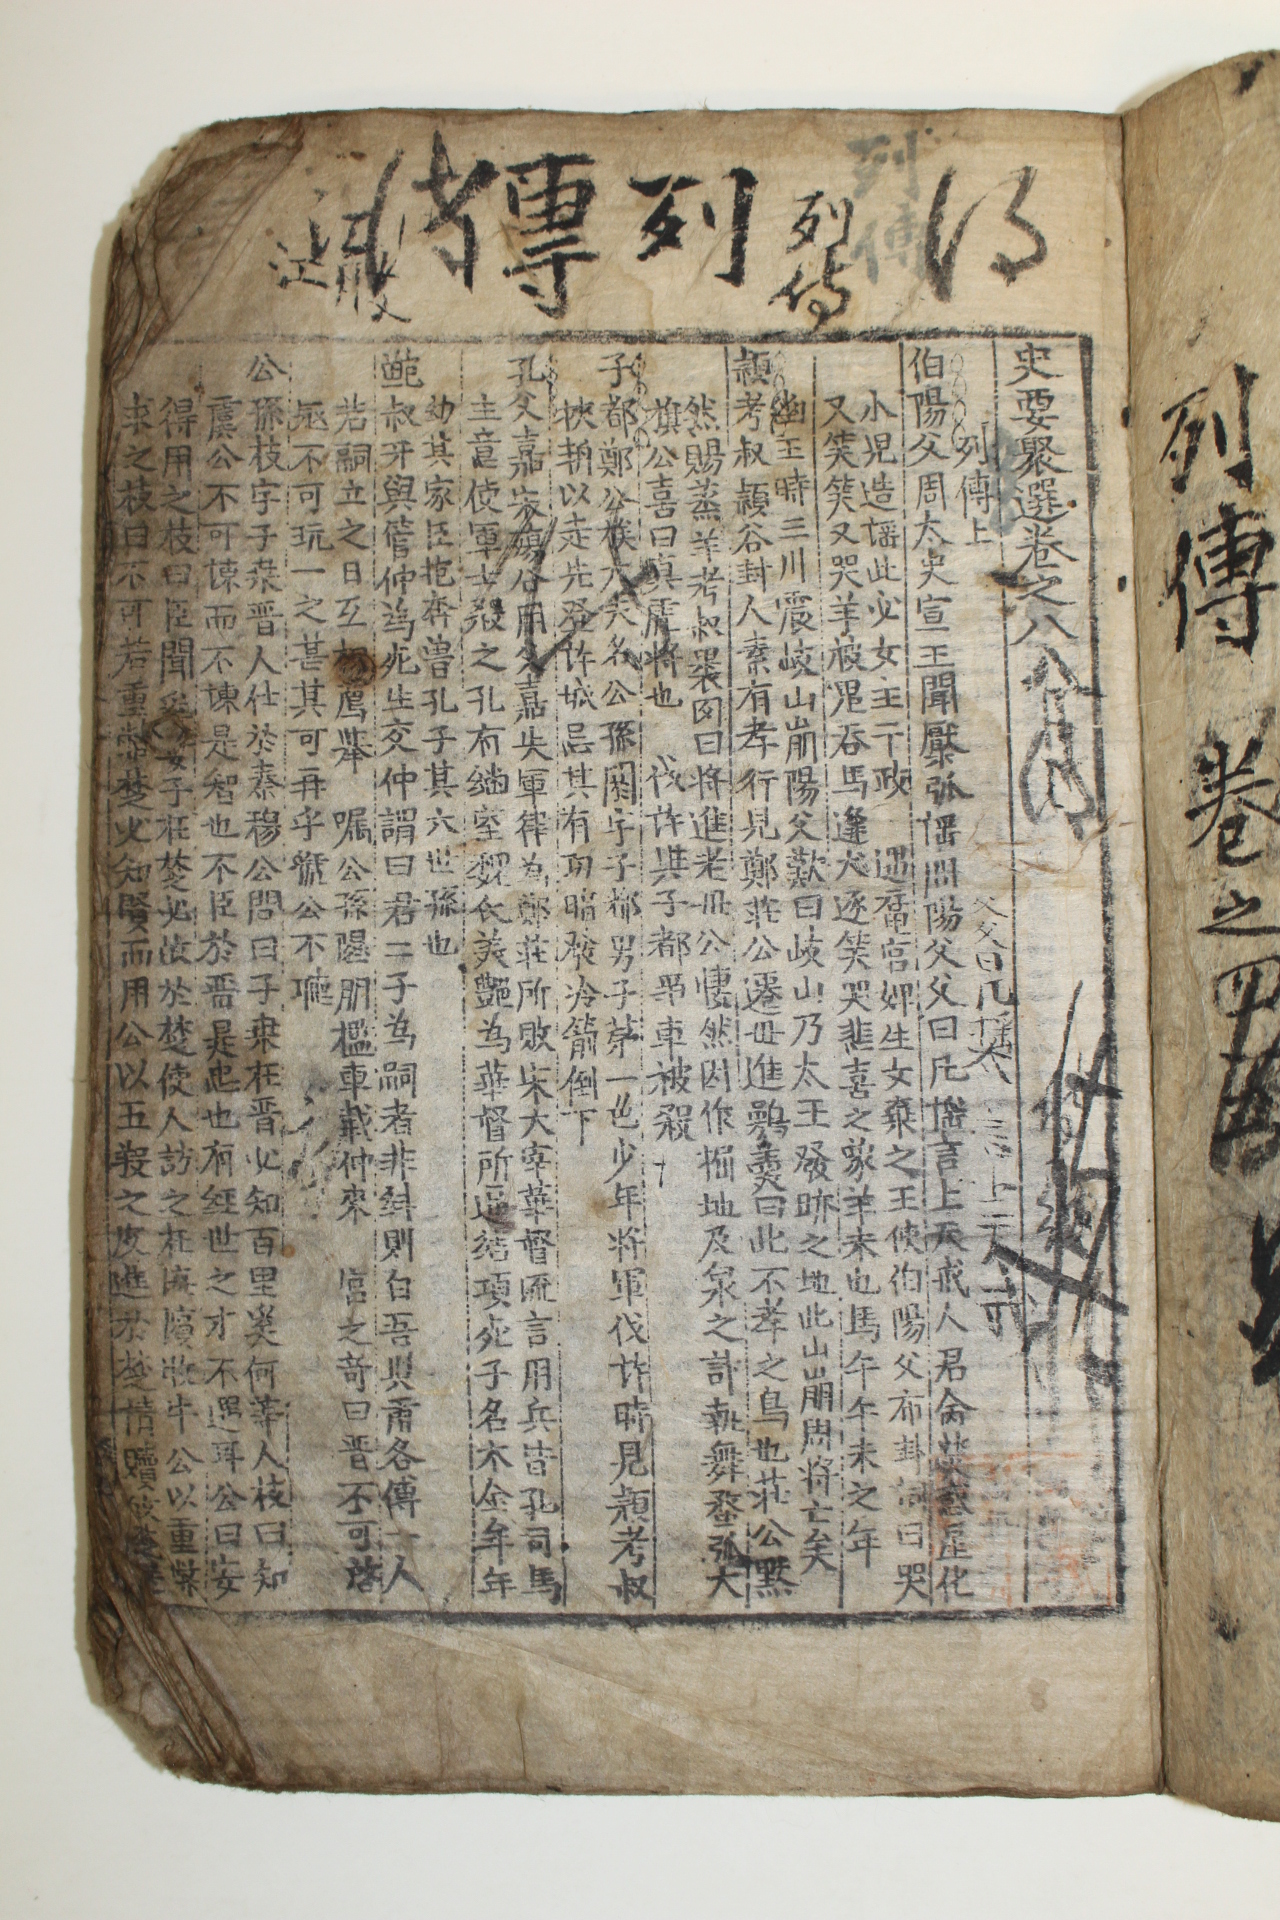 列傳
史要聚選卷之八
列傳上
伯陽父周太史宣王聞檿弧謠問陽父父曰凡謠言上天戒人君命熒惑星化
小兒造謠此必女主干政 遇奄宮婢生女棄之王使伯陽父布卦詞曰哭
又笑笑又哭羊被鬼吞馬逢犬逐笑哭悲喜之象羊未也馬午午未之年
幽王時三川震岐山崩陽父歎曰岐山乃太王發跡之地此山崩周將亡矣
潁考叔潁谷封人素有孝行見鄭莊公遷母進鷃羹曰此不孝之鳥也莊公默
然賜蒸羊考叔裹肉曰將進老母公悽然因作掘地及泉之計執舞蝥弧大
旗公喜曰眞虎將也 伐許與子都爭車被殺
子都鄭公族大夫名公孫閼字子都男子第一也少年將軍伐許時見潁考叔
挾輈以走先登許城忌其有功暗發冷箭倒下
孔父嘉宋殤公用父嘉失軍律為鄭莊所敗宋大宰華督流言用兵皆孔司馬
主意使軍士殺之孔有繼室魏氏美艶為華督所逼結項死子名木金年
幼其家臣抱奔魯孔子其六世孫也
鮑叔牙與管仲為死生交仲謂曰君二子為嗣者非糾則白吾與爾各傅一人
若嗣立之日互相薦擧 嘱公孫隰朋檻車載仲來 宮之奇曰晋不可啓
寇不可玩一之甚其可再乎虢公不聽
公孫枝字子桑晋人仕於秦穆公問曰子桑在晋必知百里奚何等人枝曰知
虞公不可諫而不諫是智也不臣於晋是忠也有經世之才不遇耳公曰安
得用之枝曰臣聞奚妻子在楚必依於楚使人訪之在海濱牧牛公以重幣
求之枝曰不可若重幣楚必知賢而用公以五羖之皮進於楚
列傳
列傳
列傳 卷之